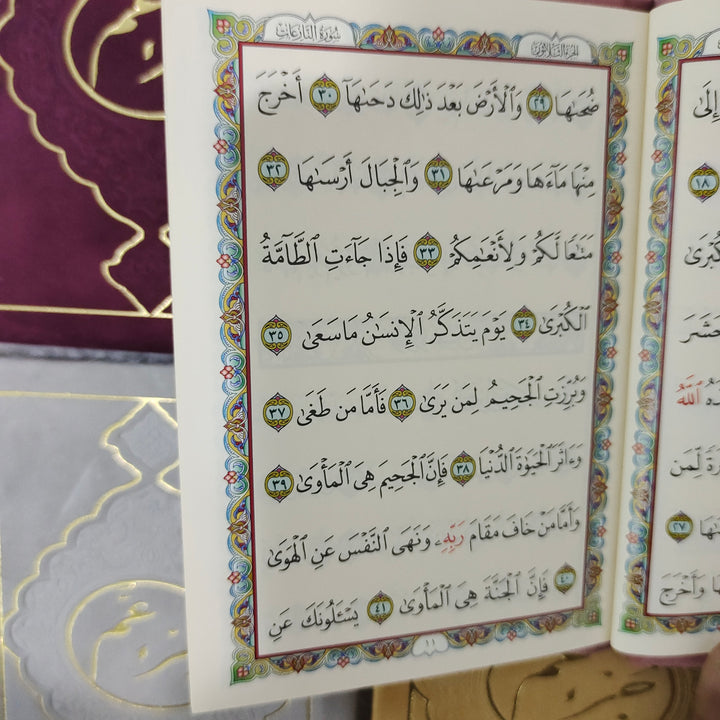 سورة النازعات
الجزء الثلاثون
ضُحَىٰهَا ٢٩ وَالْأَرْضَ بَعْدَ ذَٰلِكَ دَحَىٰهَآ ٣٠ أَخْرَجَ
مِنْهَا مَآءَهَا وَمَرْعَىٰهَا ٣١ وَالْجِبَالَ أَرْسَىٰهَا ٣٢
مَتَٰعًا لَّكُمْ وَلِأَنْعَٰمِكُمْ ٣٣ فَإِذَا جَآءَتِ الطَّآمَّةُ
الْكُبْرَىٰ ٣٤ يَوْمَ يَتَذَكَّرُ الْإِنسَٰنُ مَا سَعَىٰ ٣٥
وَبُرِّزَتِ الْجَحِيمُ لِمَن يَرَىٰ ٣٦ فَأَمَّا مَن طَغَىٰ ٣٧
وَءَاثَرَ الْحَيَوٰةَ الدُّنْيَا ٣٨ فَإِنَّ الْجَحِيمَ هِىَ الْمَأْوَىٰ ٣٩
وَأَمَّا مَنْ خَافَ مَقَامَ رَبِّهِۦ وَنَهَى النَّفْسَ عَنِ الْهَوَىٰ
٤٠ فَإِنَّ الْجَنَّةَ هِىَ الْمَأْوَىٰ ٤١ يَسْـَٔلُونَكَ عَنِ
١١
إِلَىٰ
١٨
الْكُبْرَىٰ
حَشَرَ
اللَّهُ
لِّمَن
٢٧
وَأَخْرَجَ